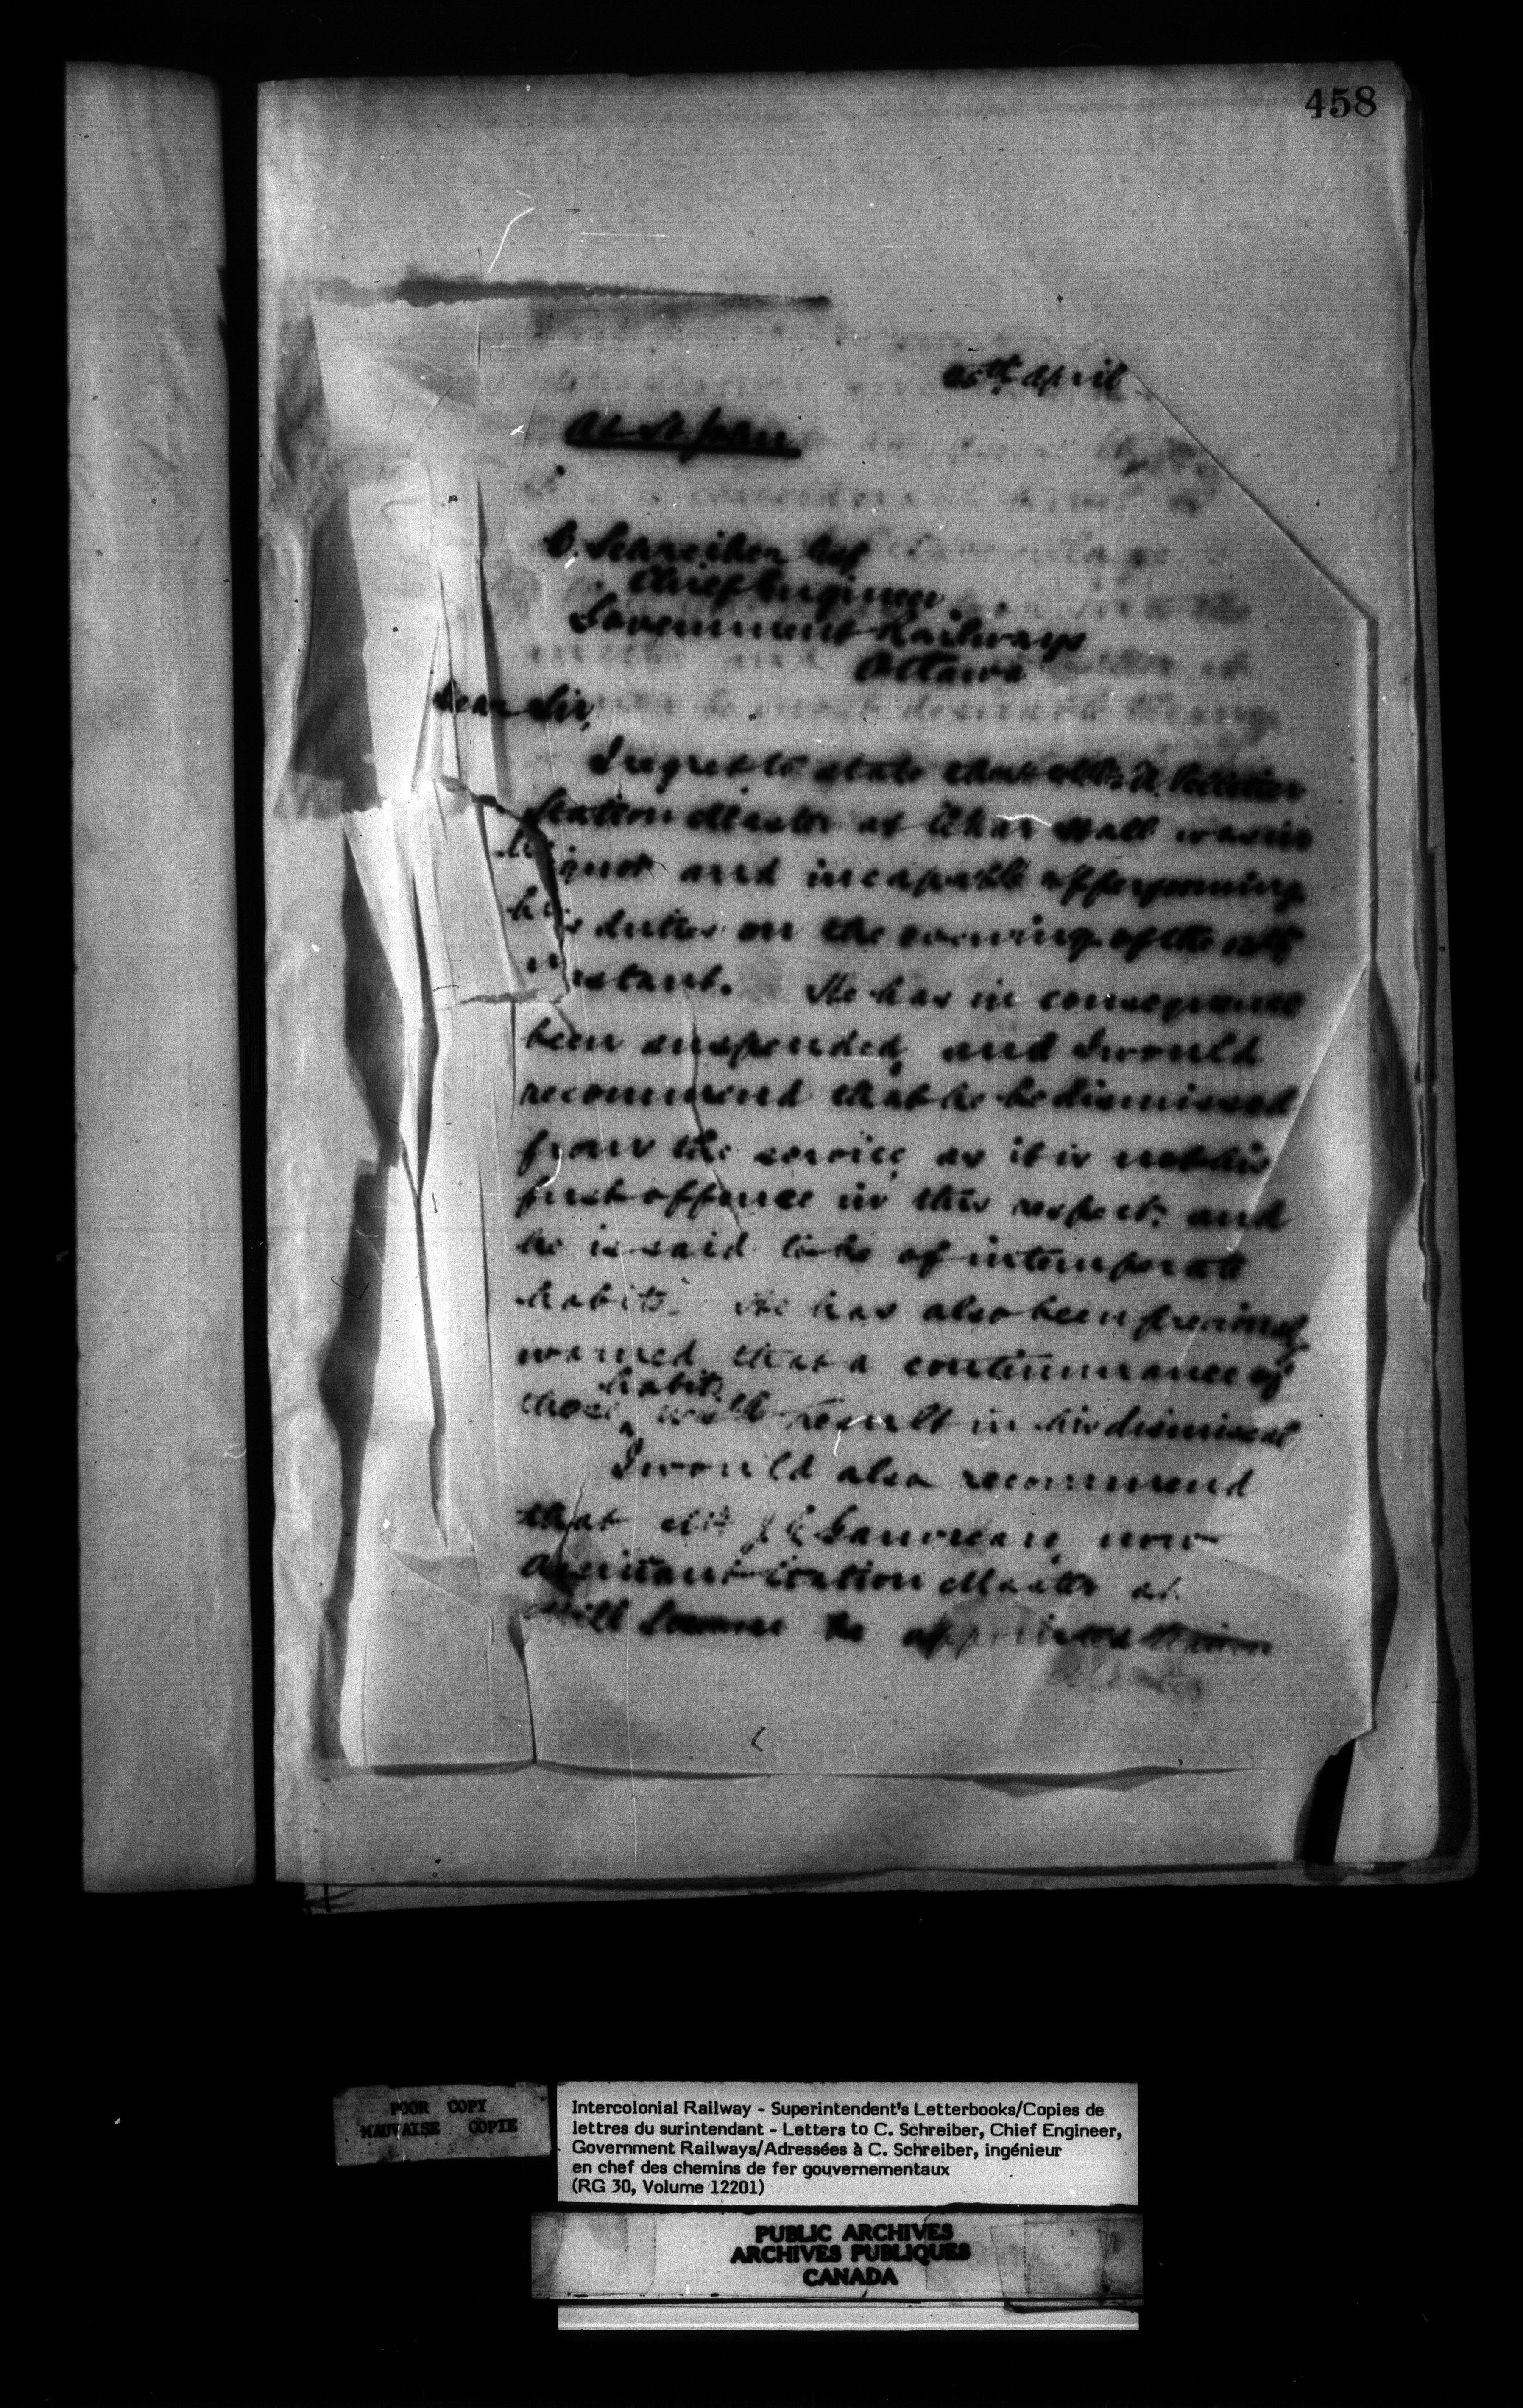 458
April
At St John
C. Schreiber Esq
Chief Engineer
Government Railways
Ottawa
Dear Sir,
I regret to state that Mr. Pelletier
Station Master at was in
liquor and incapable of performing
his duties on the evening of the
instant. He has in consequence
been suspended, and I would
recommend that he be dismissed
from the service, as it is not his
first offence in this respect, and
he is said to be of intemperate
habits. He has also been previously
warned that a continuance of
those habits will result in his dismissal
I would also recommend
that Mr J Gauvreau, now
Assistant Station Master at
Mill be appointed Station
Master
POOR COPY
MAUVAISE COPIE
Intercolonial Railway - Superintendent's Letterbooks/Copies de
lettres du surintendant - Letters to C. Schreiber, Chief Engineer,
Government Railways/Adressées à C. Schreiber, ingénieur
en chef des chemins de fer gouvernementaux
(RG 30, Volume 12201)
PUBLIC ARCHIVES
ARCHIVES PUBLIQUES
CANADA